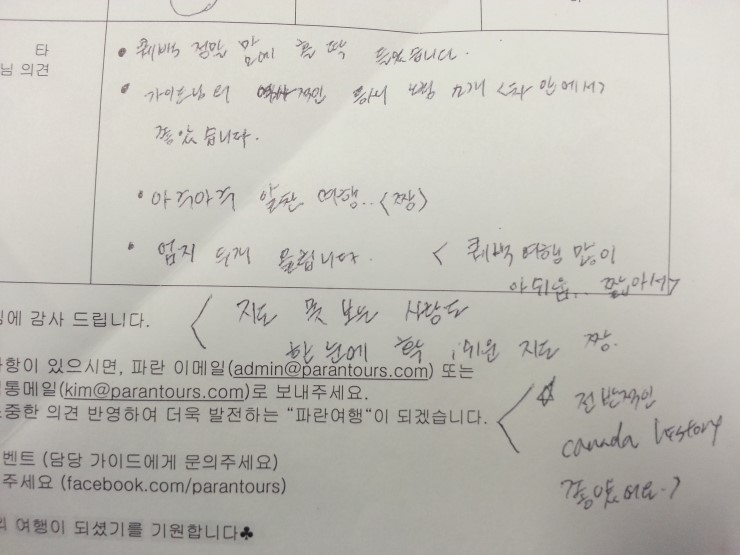 타
님 의견
• 퀘백 정말 맘에 흠뻑 들었습니다.
• 가이드님의 역사적인 노랑 소개 <차 안에서>
좋았습니다.
• 아기자기 알찬 여행.. <짱>
• 엄지 두개 올립니다. < 퀘백 여행 많이
아쉬움.. 짧아서>
< 지도 못 보는 사람도
한 눈에 확, 쉬운 지도 짱.
님에 감사 드립니다.
사항이 있으시면, 파란 이메일(admin@parantours.com) 또는
통메일(kim@parantours.com)로 보내주세요.
소중한 의견 반영하여 더욱 발전하는 "파란여행"이 되겠습니다.
< ☆ 전반적인
canada history
좋았어요.>
벤트 (담당 가이드에게 문의주세요)
주세요 (facebook.com/parantours)
의 여행이 되셨기를 기원합니다♣